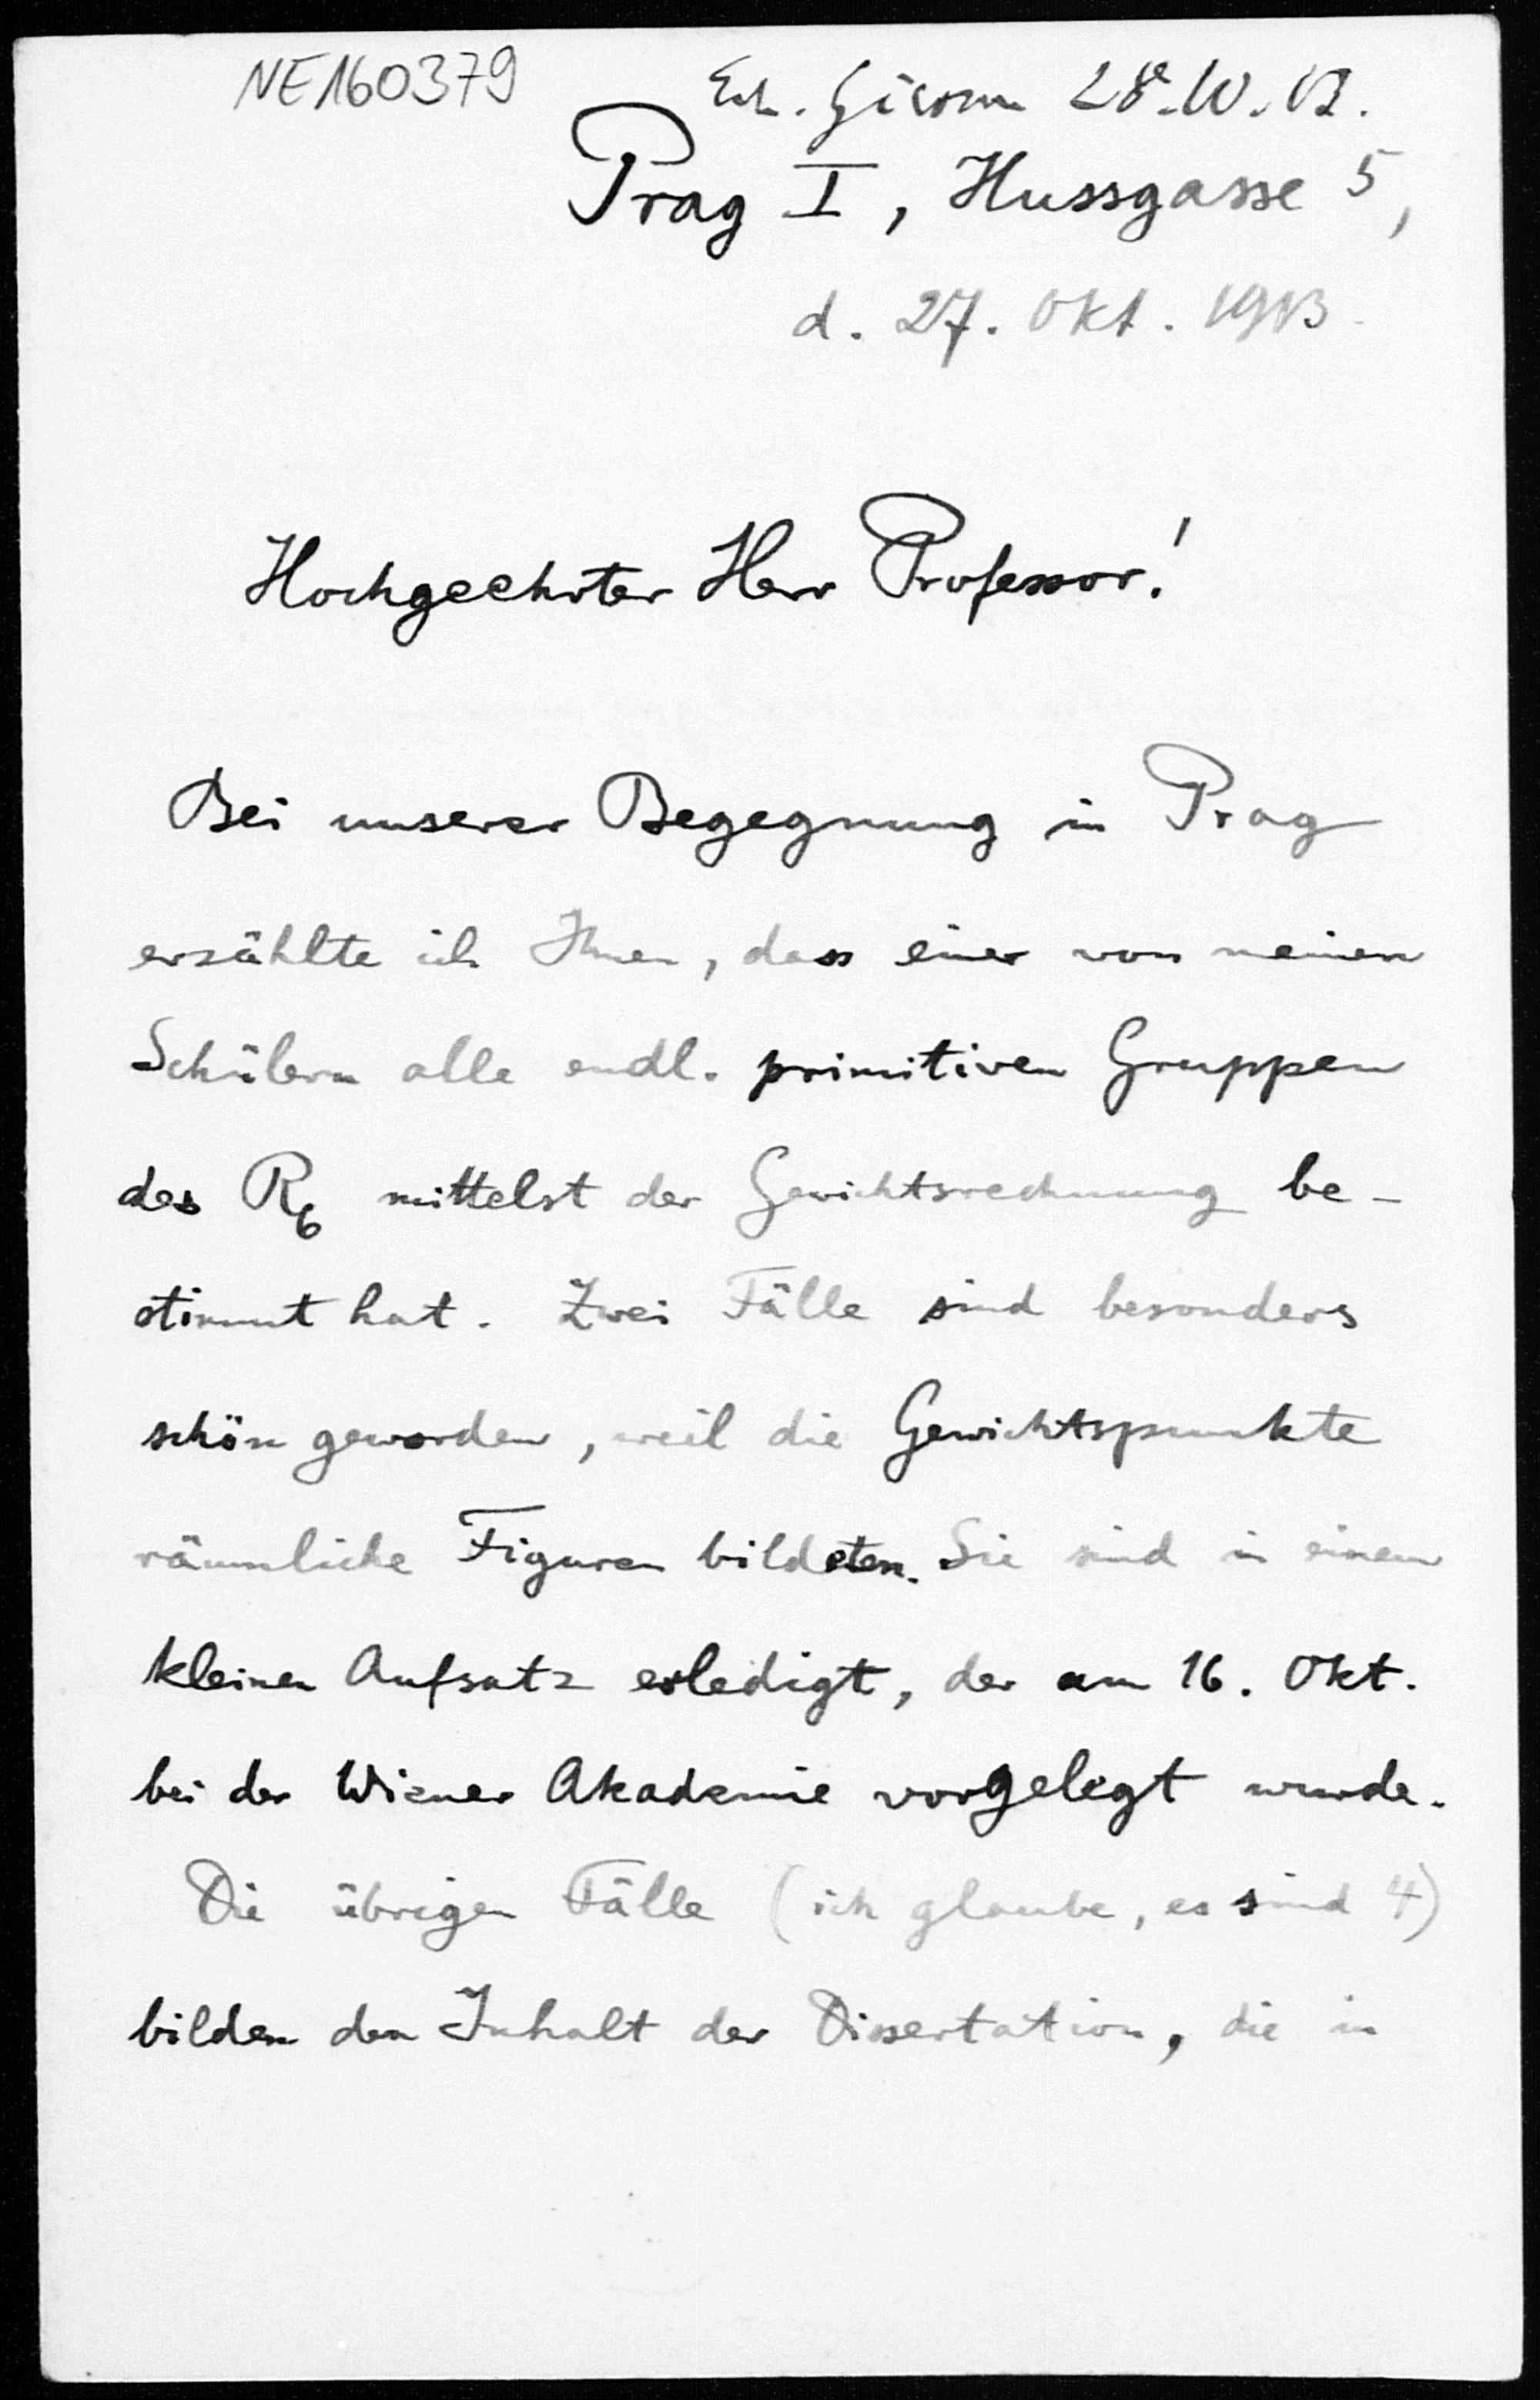 NE160379
Erh. Giessen 28.10.13.
Prag I, Hussgasse 5,
d. 27. Okt. 1913.
Hochgeehrter Herr Professor!
Bei unserer Begegnung in Prag
erzählte ich Ihnen, dass einer von meinen
Schülern alle endl. primitiven Gruppen
des R6 mittelst der Gewichtsrechnung be-
stimmt hat. Zwei Fälle sind besonders
schön geworden, weil die Gewichtspunkte
räumliche Figuren bildeten. Sie sind in einem
kleinen Aufsatz erledigt, der am 16. Okt.
bei der Wiener Akademie vorgelegt wurde.
Die übrigen Fälle (ich glaube, es sind 4)
bilden den Inhalt der Dissertation, die in